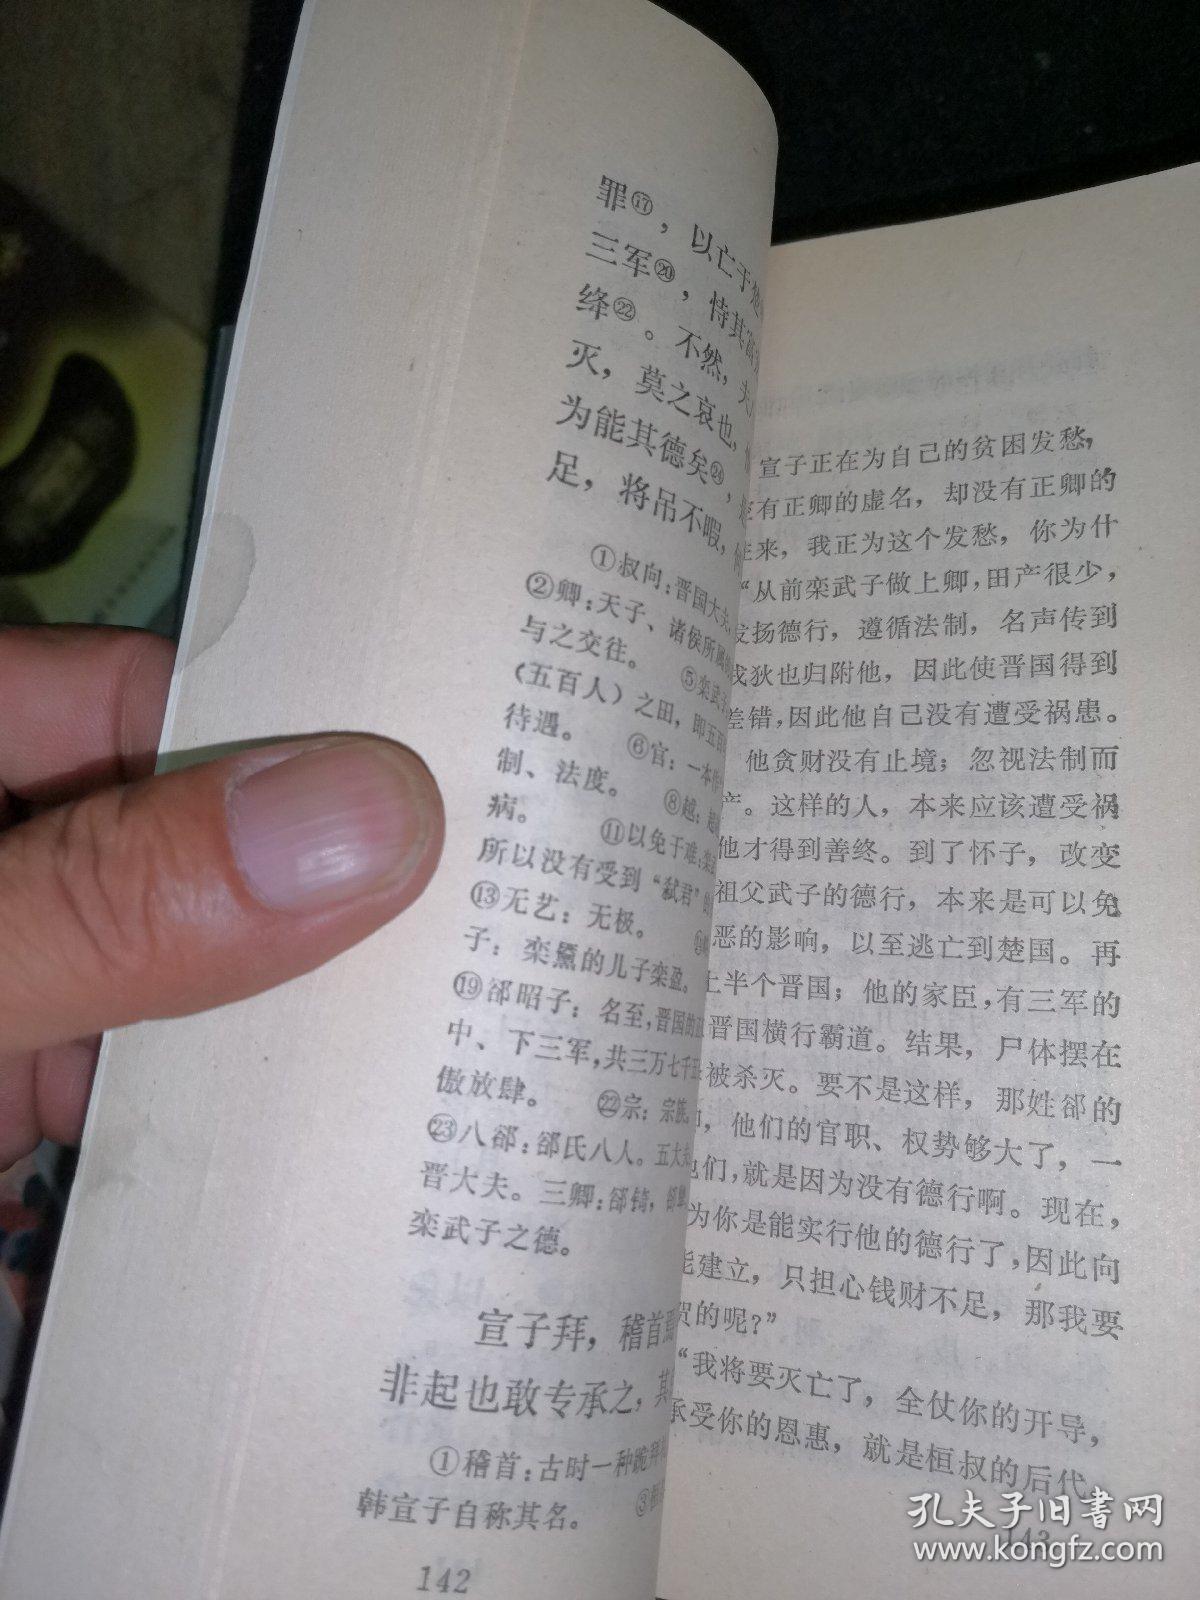 罪⑰，以亡于
三军⑳，恃其富
绛㉒。不然，夫
灭，莫之哀也，
为能其德矣㉔，
足，将吊不暇，
①叔向：晋国大夫
②卿：天子、诸侯所属
与之交往。 ⑤栾武子
（五百人）之田，即五百
待遇。 ⑥官：一本作
制、法度。 ⑧越：
病。 ⑪以免于难：栾
所以没有受到“弑君”的
⑬无艺：无极。
子：栾黡的儿子栾盈。
⑲郤昭子：名至，晋国的
中、下三军，共三万七千五
傲放肆。 ㉒宗：宗族。
㉓八郤：郤氏八人。五大夫
晋大夫。三卿：郤锜，郤犨
栾武子之德。
宣子拜，稽首
非起也敢专承之，其
①稽首：古时一种跪拜
韩宣子自称其名。 ③
142
宣子正在为自己的贫困发愁，
有正卿的虚名，却没有正卿的
来，我正为这个发愁，你为什
“从前栾武子做上卿，田产很少，
发扬德行，遵循法制，名声传到
戎狄也归附他，因此使晋国得到
差错，因此他自己没有遭受祸患。
他贪财没有止境；忽视法制而
产。这样的人，本来应该遭受祸
他才得到善终。到了怀子，改变
祖父武子的德行，本来是可以免
恶的影响，以至逃亡到楚国。再
上半个晋国；他的家臣，有三军的
晋国横行霸道。结果，尸体摆在
被杀灭。要不是这样，那姓郤的
，他们的官职、权势够大了，一
他们，就是因为没有德行啊。现在，
为你是能实行他的德行了，因此向
能建立，只担心钱财不足，那我要
贺的呢？”
“我将要灭亡了，全仗你的开导，
承受你的恩惠，就是桓叔的后代。
143
孔夫子旧书网
www.kongfz.com